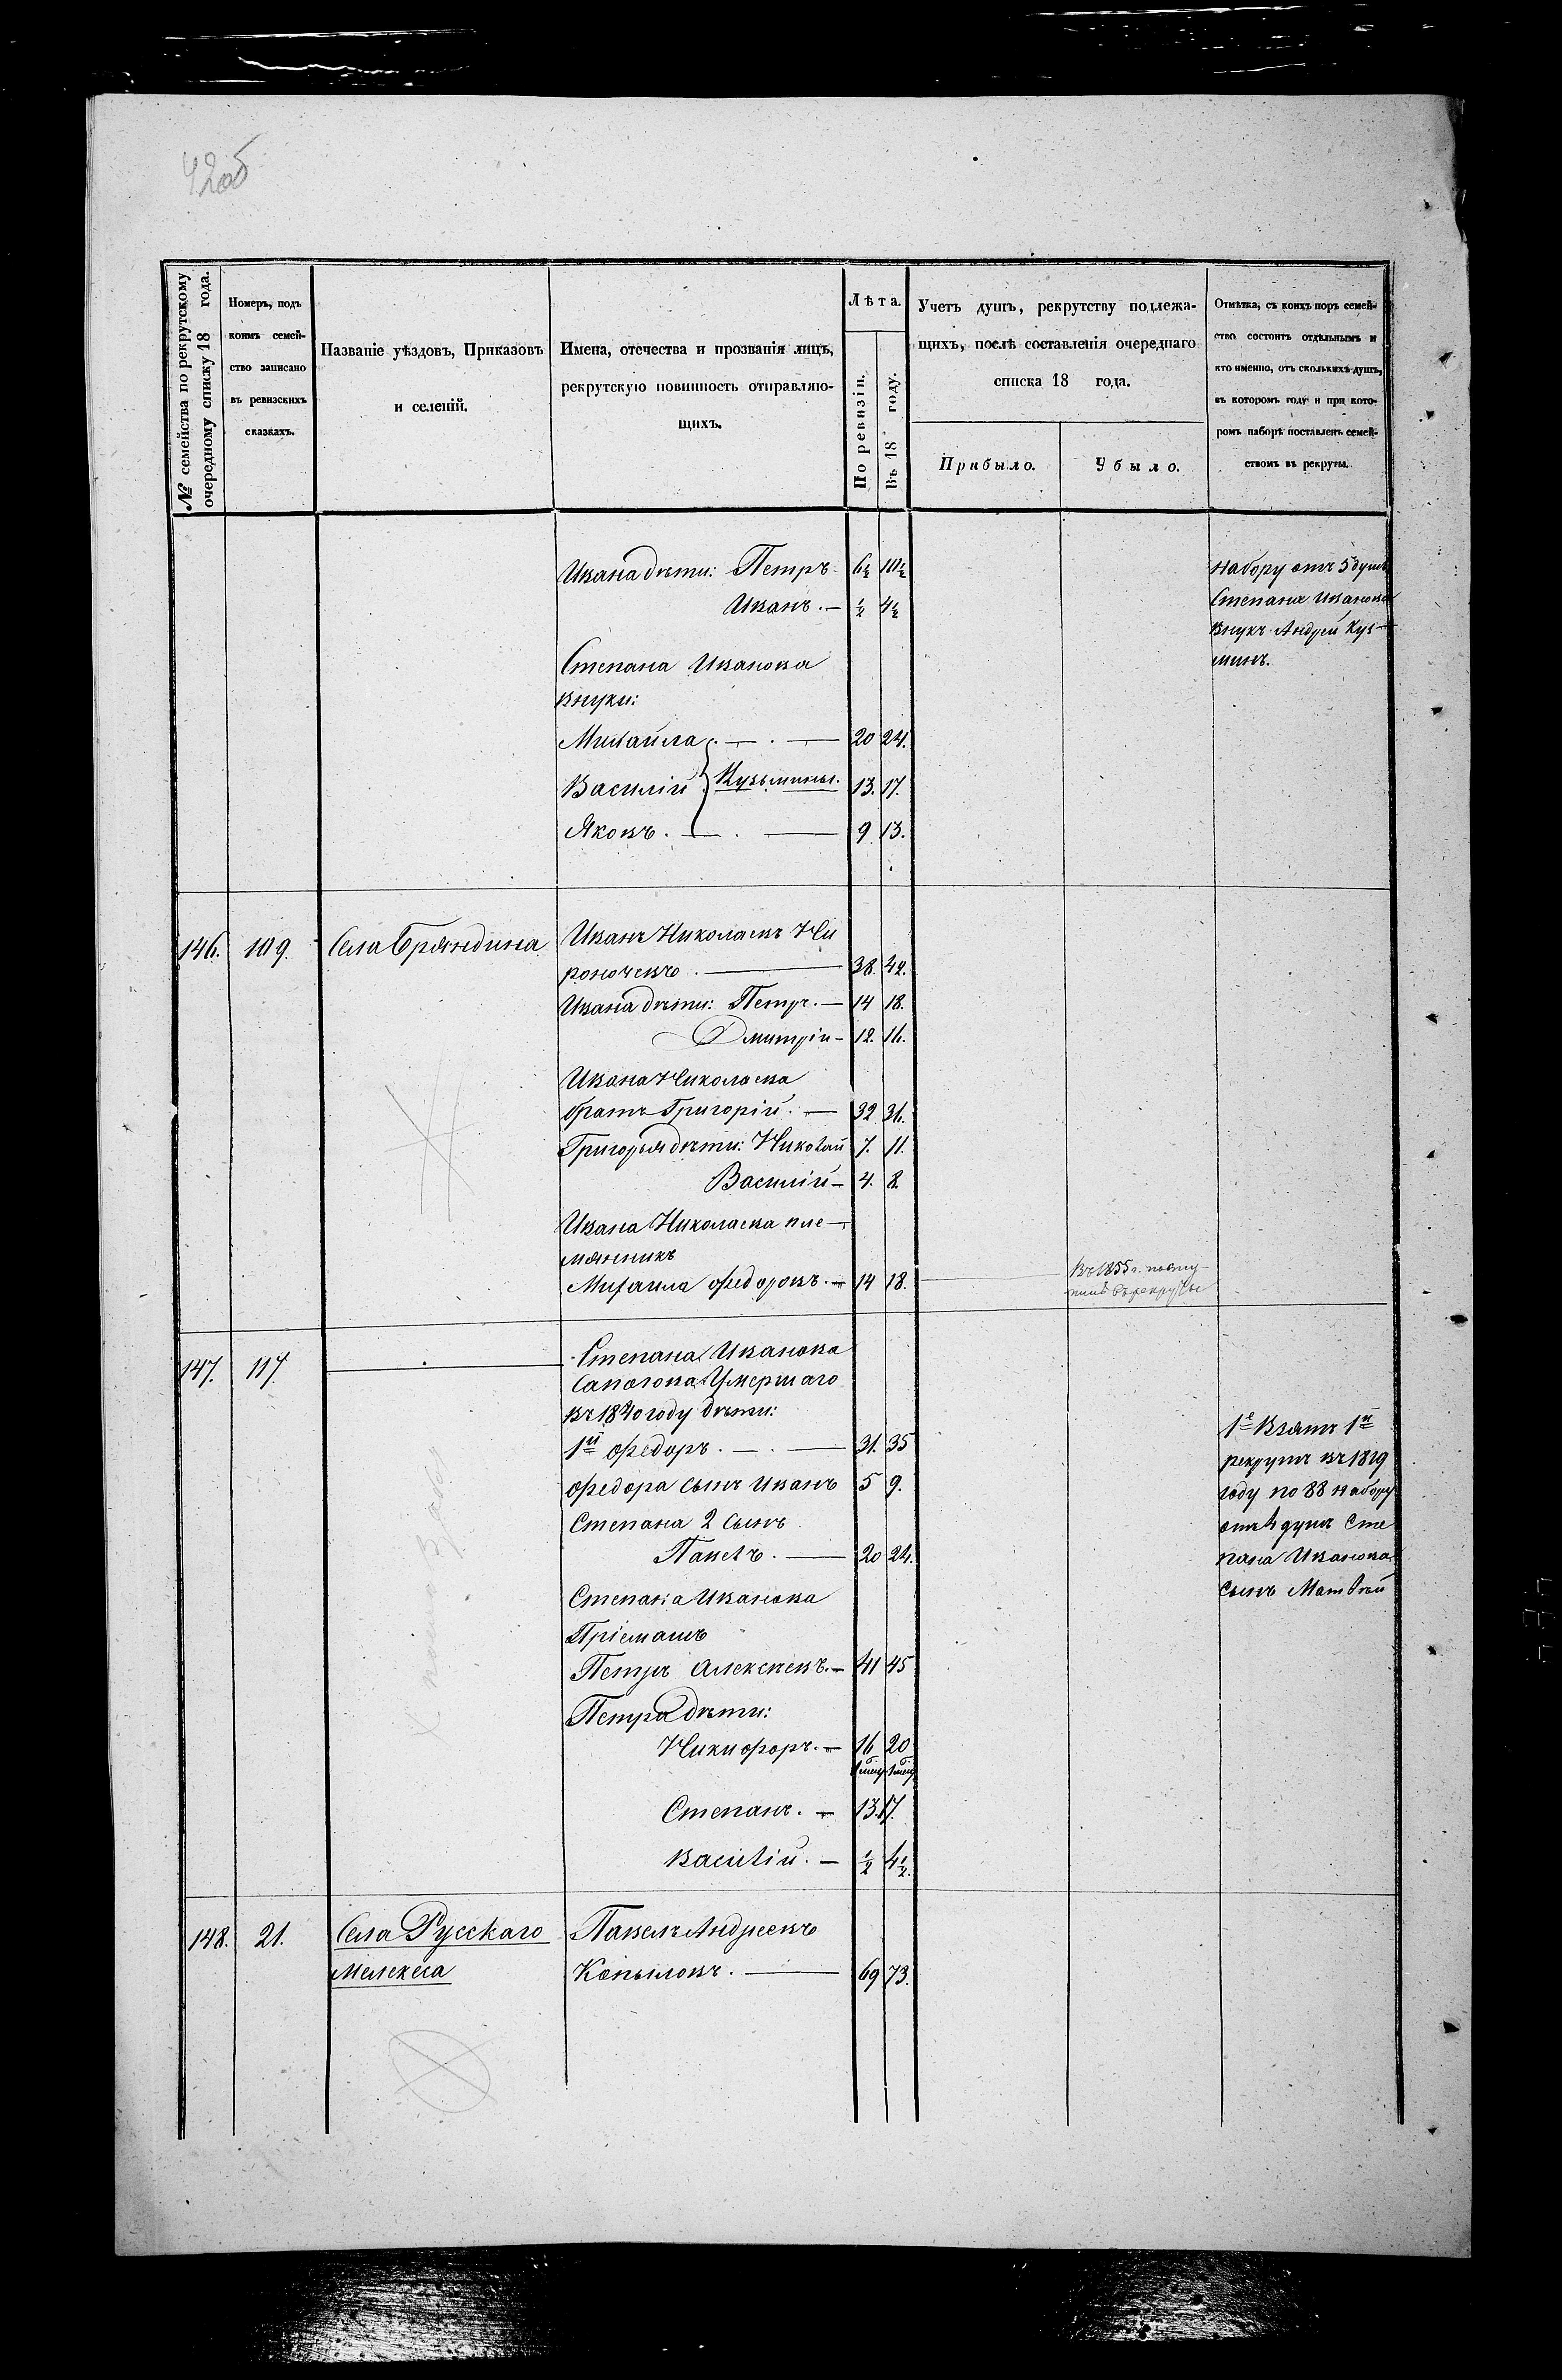 42об
№ семейства по рекрутскому
очередному списку 18 года.
Номеръ, подъ
коимъ семей-
ство записано
въ ревизскихъ
сказкахъ.
Названіе уѣздовъ, Приказовъ
и селеній.
Имена, отечества и прозванія лицъ,
рекрутскую повинность отправляю-
щихъ.
Лѣта.
По ревизіи.
Въ 18 году.
Учетъ душъ, рекрутству подлежа-
щихъ, послѣ составленія очереднаго
списка 18 года.
Прибыло.
Убыло.
Отмѣтка, съ коихъ поръ семей-
ство состоитъ отдѣльнымъ и
кто именно, отъ сколькихъ душъ,
въ которомъ году и при кото-
ромъ наборѣ поставленъ семей-
ствомъ въ рекруты.
Ивана дѣти: Петръ 6½ 10½
Иванъ. — ½ 4½
Степана Иванова
внуки:
Михайла. — 20 24.
Василій Кузьмины. 13. 17.
Яковъ. — 9 13.
набору отъ 5 душъ
Степана Иванова
внукъ Андрей Кузь-
минъ.
146. 109. Села Бряндина Иванъ Николаевъ Ми
роночевъ. — 38. 42.
Ивана дѣти: Петръ. — 14 18.
Дмитрій — 12. 16.
Ивана Николаева
братъ Григорій. — 32 36.
Григорья дѣти: Николай 7. 11.
Василій — 4. 8.
Ивана Николаева пле-
мянникъ
Михайла Федоровъ. — 14 18.
Въ 1855 г. посту-
пилъ въ рекруты
147. 117. Степана Иванова
Сапогова Умершаго
въ 1840 году дѣти:
1й Федоръ. — 31. 35
Федора сынъ Иванъ 5 9.
Степана 2 сынъ
Павелъ. — 20 24.
Степана Иванова
Пріемышъ
Петръ Алексѣевъ. — 41 45
Петра дѣти:
Никифоръ. — 16 20
Степанъ. — 13. 17.
Василій. — ½ 4½.
1е Взятъ 1й
рекрутъ въ 1819
году по 88 набору
отъ 4 душъ Сте
пана Иванова
сынъ Матвѣй
148. 21. Села Русскаго Павелъ Андреевъ
Мелекеса Копыловъ. — 69 73.